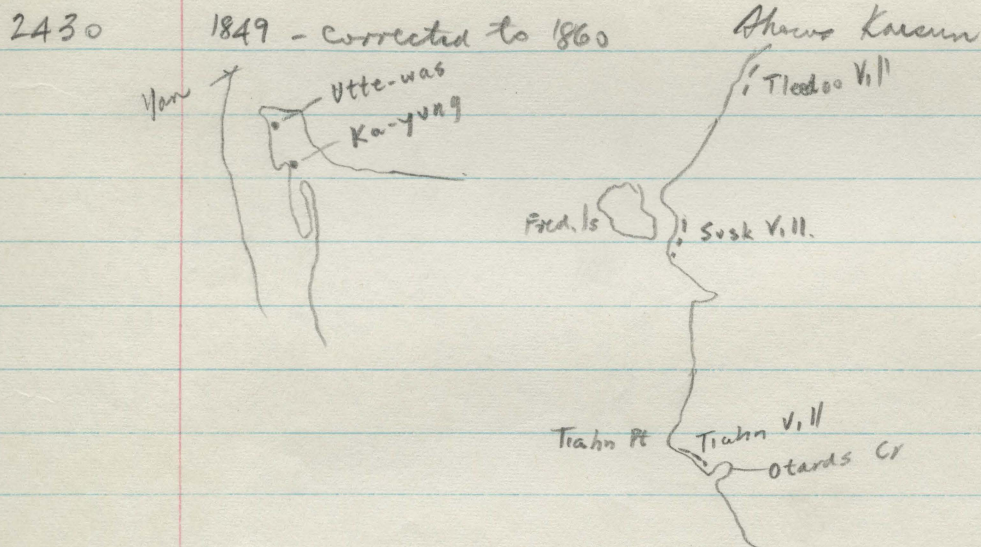 2430 1849 - corrected to 1860 Shows Kaisun
Yan
Utte-was
Ka-yung
Tleedoo Vill
Fred. Is
Susk Vill.
Tiahn Pt
Tiahn Vill
Otards Cr